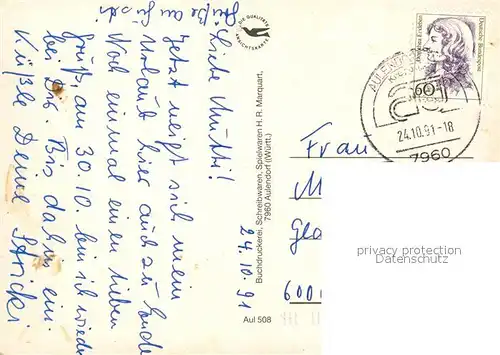 Grüße an Gusti
24.10.91
Liebe Mutti!
Jetzt neigt sich mein
Urlaub hier auch zu Ende
Noch einmal einen lieben
Gruß, am 30.10. bin ich wieder
bei Dir. Bis dahin ein
Küßle Deine
DIE QUALITÄTS
ANSICHTSKARTE
Buchdruckerei, Schreibwaren, Spielwaren H. R. Marquart,
7960 Aulendorf (Württ.)
Aul 508
Deutsche Bundespost
60
AULENDORF
24.10.91-18
7960
Frau
M
privacy protection
Datenschutz